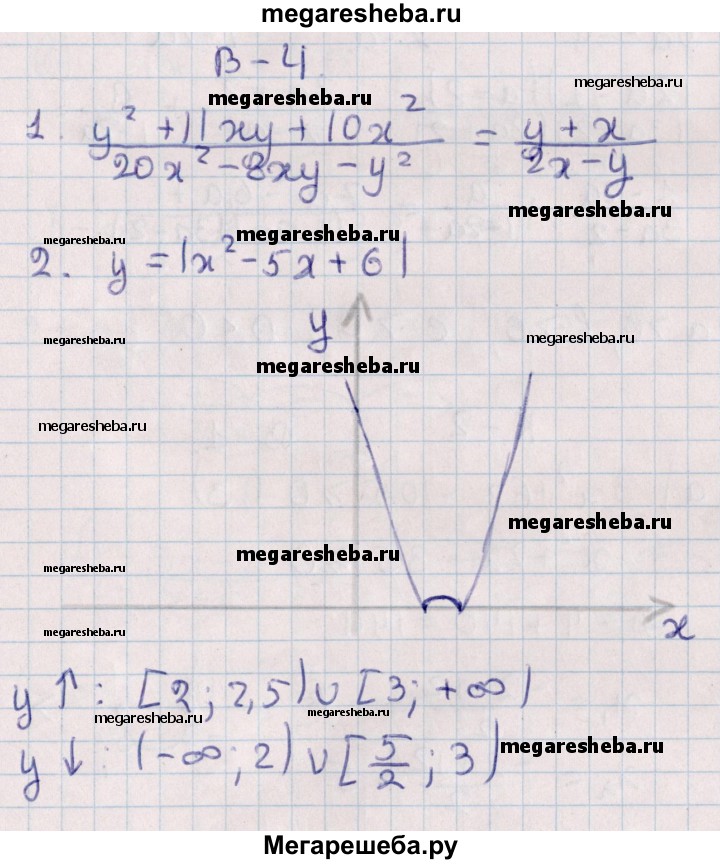 megaresheba.ru
В - 4.
megaresheba.ru
megaresheba.ru
1. (y² + 11xy + 10x²)/(20x² - 8xy - y²) = (y + x)/(2x - y)
megaresheba.ru
megaresheba.ru megaresheba.ru
2. y = |x² - 5x + 6|
y
megaresheba.ru megaresheba.ru
megaresheba.ru
megaresheba.ru
megaresheba.ru
megaresheba.ru
megaresheba.ru
megaresheba.ru
x
y ↑ : [2; 2,5) ∪ [3; +∞)
megaresheba.ru megaresheba.ru
y ↓ : (-∞; 2) ∪ [5/2; 3)
megaresheba.ru
Мегарешеба.ру